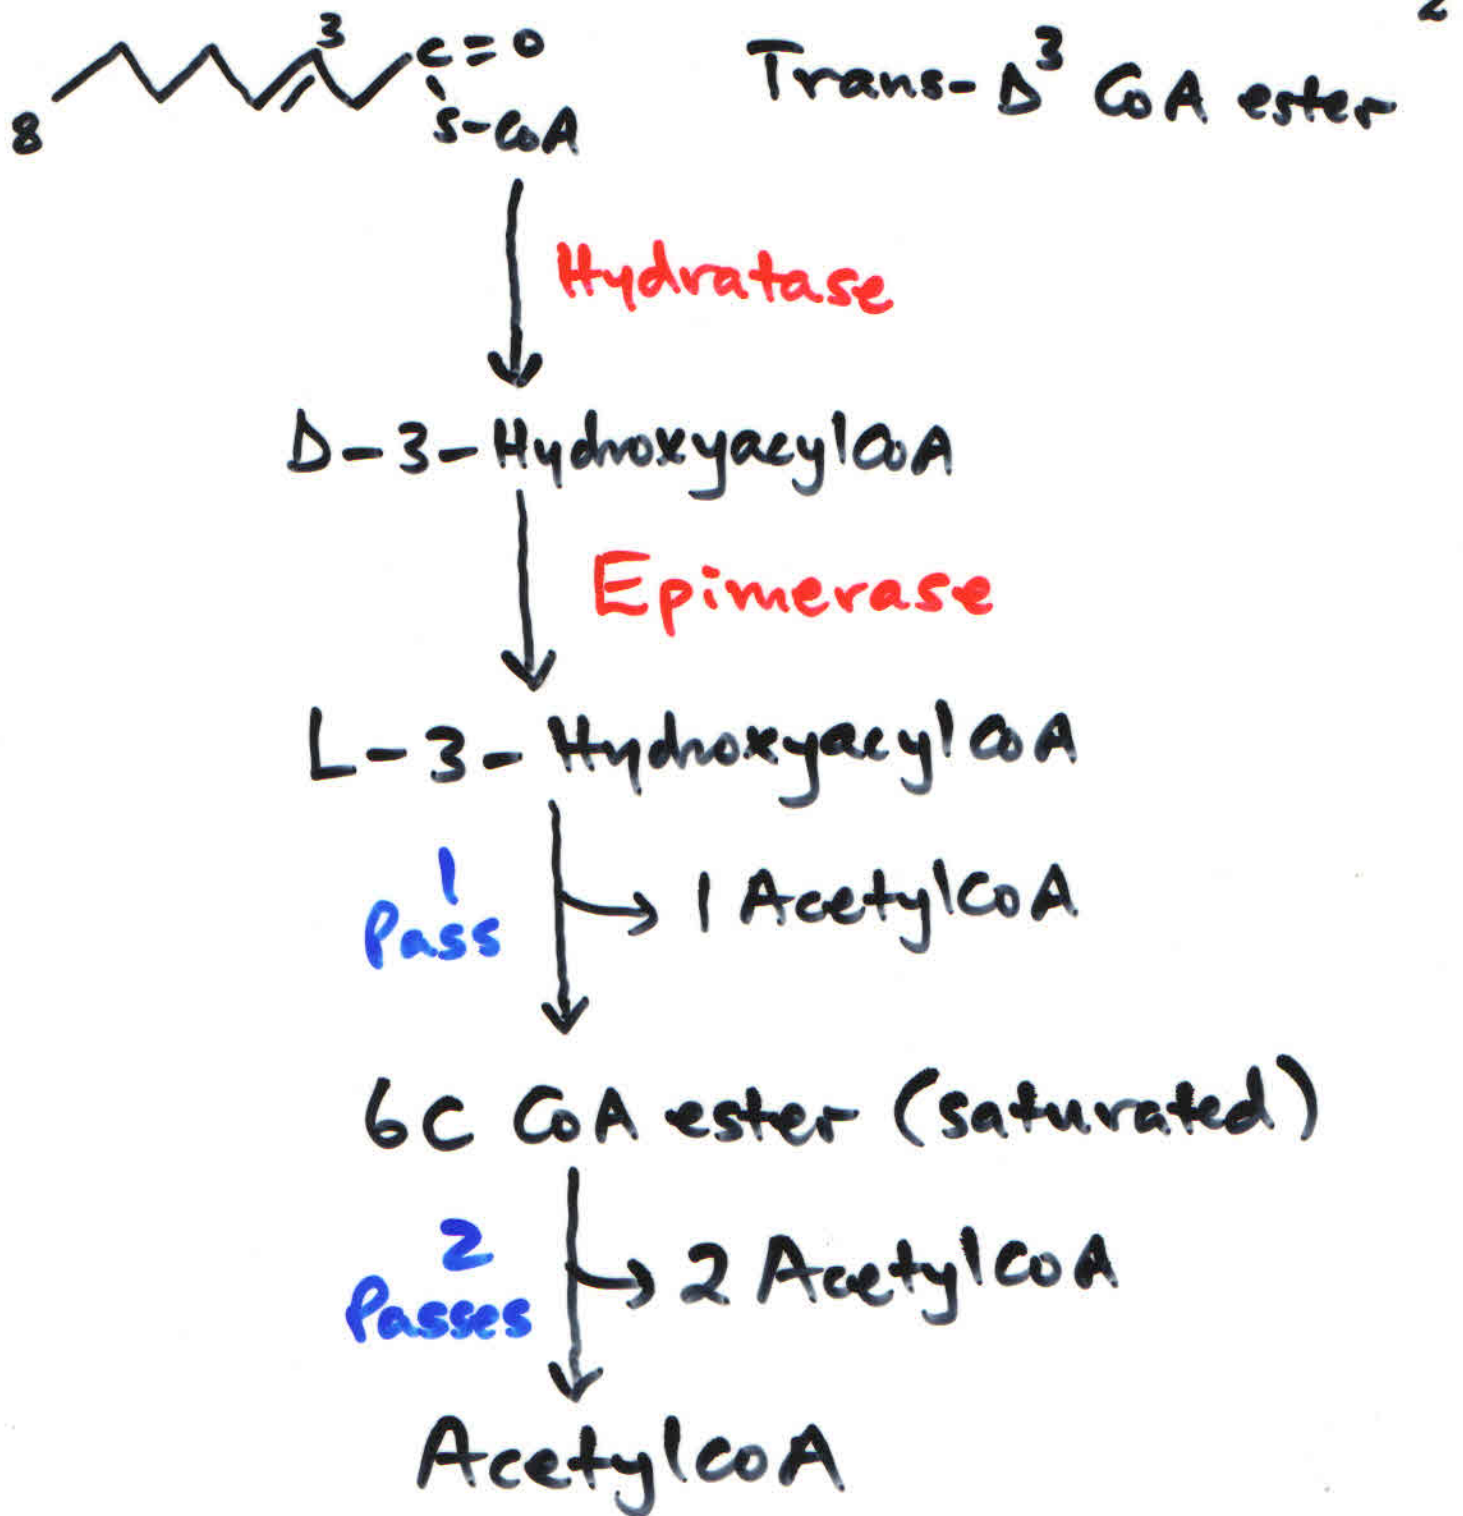 2
3
C=O
Trans-Δ³ CoA ester
8
S-CoA
Hydratase
D-3-HydroxyacylCoA
Epimerase
L-3-HydroxyacylCoA
1
Pass
1 AcetylCoA
6C CoA ester (saturated)
2
Passes
2 AcetylCoA
AcetylCoA